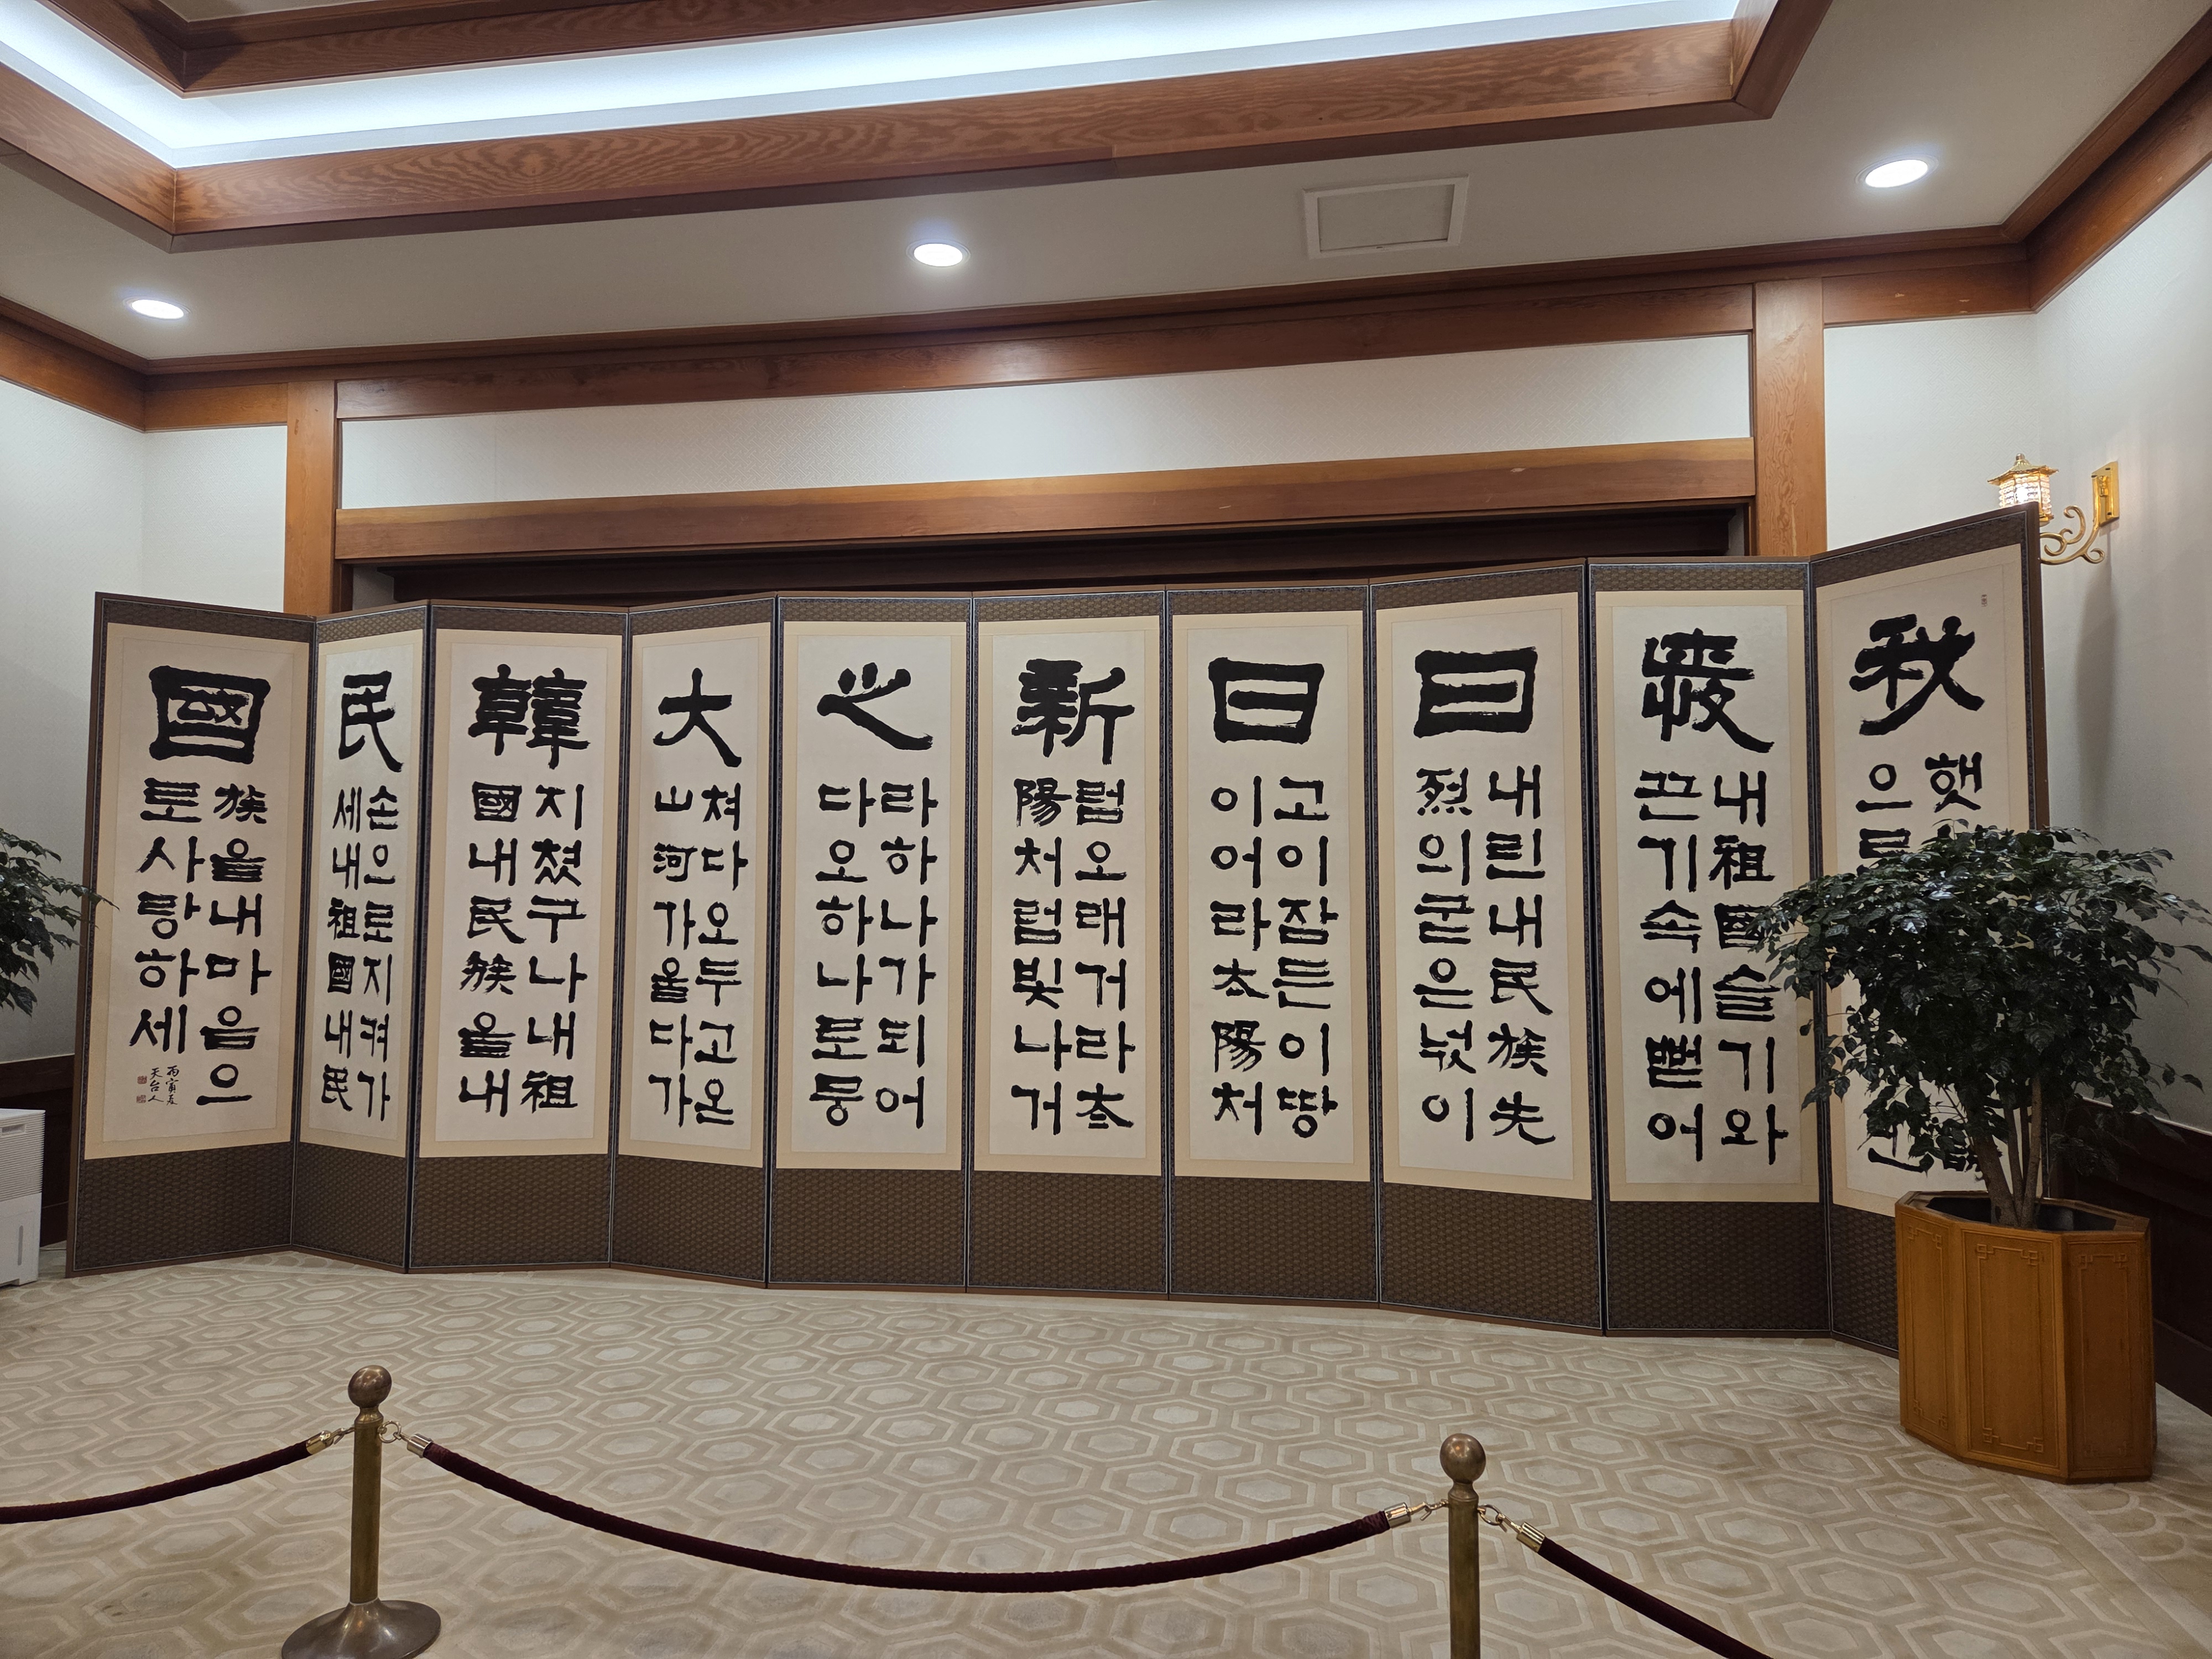 秋
햇
으로
내祖國슬기와
끈기속에뻗어
日
내린내民族先
烈의굳은넋이
日
고이잠든이땅
이어라太陽처
新
럼오래거라太
陽처럼빛나거
之
라하나가되어
다오하나로뭉
大
쳐다오두고온
山河가울다가
韓
지쳤구나내祖
國내民族을내
民
손으로지켜가
세내祖國내民
國
族을내마음으
로사랑하세
丙寅
天台人